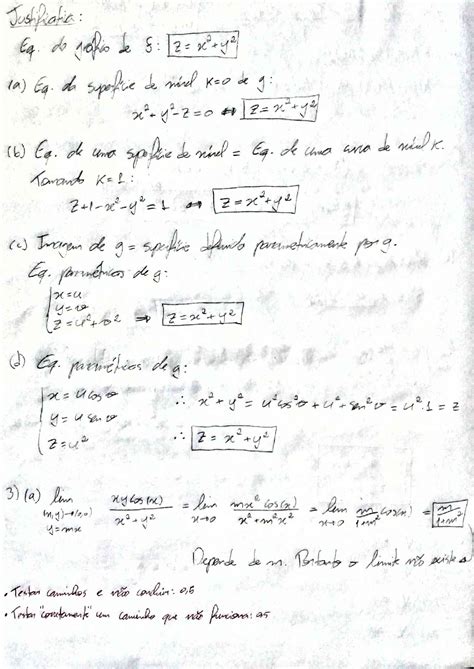 Justificativa:
Eq. do gráfico de f: z = x² + y²
(a) Eq. da superfície de nível K=0 de g:
x² + y² - z = 0 ⇔ z = x² + y²
(b) Eq. de uma superfície de nível = Eq. de uma curva de nível K.
Tomando K = 1:
z + 1 - x² - y² = 1 ⇔ z = x² + y²
(c) Imagem de g = superfície definida parametricamente por g.
Eq. paramétricas de g:
x = u
y = v
z = u² + v² ⇒ z = x² + y²
(d) Eq. paramétricas de g:
x = u cos v ∴ x² + y² = u² cos² v + u² sen² v = u².1 = z
y = u sen v
z = u² ∴ z = x² + y²
3) (a) lim (x,y)→(0,0) y=mx xy cos(x) / x² + y² = lim x→0 mx² cos(x) / x² + m²x² = lim x→0 m / 1+m² cos(x) = m / 1+m²
Depende de m. Portanto o limite não existe
• Testar caminhos e não concluir: 0,5
• Testar "corretamente" um caminho que não funciona: 0,5